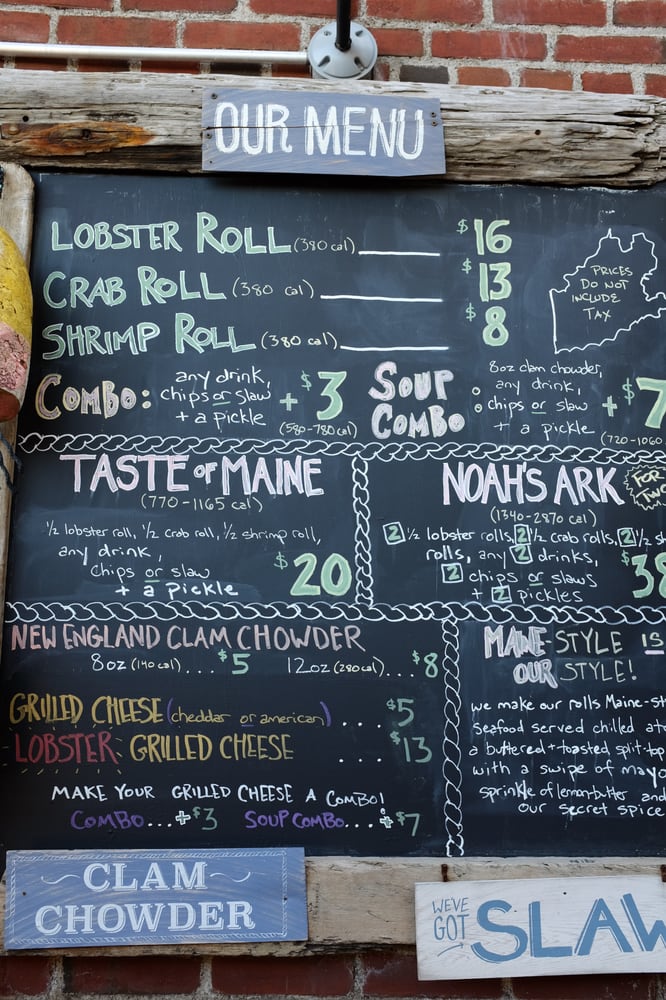 OUR MENU
LOBSTER ROLL (380 cal) $16
CRAB ROLL (380 cal) $13
SHRIMP ROLL (380 cal) $8
PRICES
DO NOT
INCLUDE
TAX
COMBO: any drink,
chips or slaw
+ a pickle
+ $3
(580-780 cal)
SOUP
COMBO: 8oz clam chowder,
any drink,
chips or slaw
+ a pickle
+ $7
(720-1060
TASTE OF MAINE
(770-1165 cal)
1/2 lobster roll, 1/2 crab roll, 1/2 shrimp roll,
any drink,
chips or slaw
+ a pickle
$20
NOAH'S ARK
FOR
(1340-2870 cal)
2 1/2 lobster rolls, 2 1/2 crab rolls, 2 1/2
rolls, any 2 drinks,
2 chips or slaws
+ 2 pickles
NEW ENGLAND CLAM CHOWDER
8oz (140 cal).... $5 12oz (280 cal).... $8
GRILLED CHEESE (cheddar or american) ... $5
LOBSTER GRILLED CHEESE ... $13
MAKE YOUR GRILLED CHEESE A COMBO!
COMBO...+$3 SOUP COMBO...+$7
MAINE-STYLE IS
OUR STYLE!
we make our rolls Maine-st
seafood served chilled
a buttered + toasted split-top
with a swipe of mayo
sprinkle of lemon-butter and
our secret spice
CLAM
CHOWDER
WE'VE
GOT
SLAW